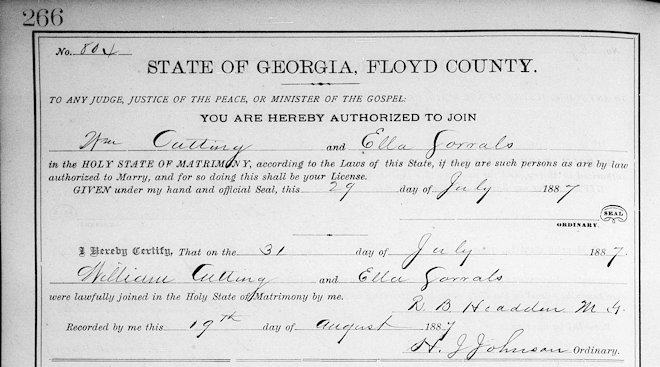 266
No. 804
STATE OF GEORGIA, FLOYD COUNTY.
TO ANY JUDGE, JUSTICE OF THE PEACE, OR MINISTER OF THE GOSPEL:
YOU ARE HEREBY AUTHORIZED TO JOIN
Wm Cutting and Ella Sorrals
in the HOLY STATE OF MATRIMONY, according to the Laws of this State, if they are such persons as are by law
authorized to Marry, and for so doing this shall be your License.
GIVEN under my hand and official Seal, this 29 day of July 1887
SEAL
ORDINARY.
I Hereby Certify, That on the 31 day of July 1887.
William Cutting and Ella Sorrals
were lawfully joined in the Holy State of Matrimony by me.
R. B. Headden M. G.
Recorded by me this 19th day of august 1887
H. J Johnson Ordinary.